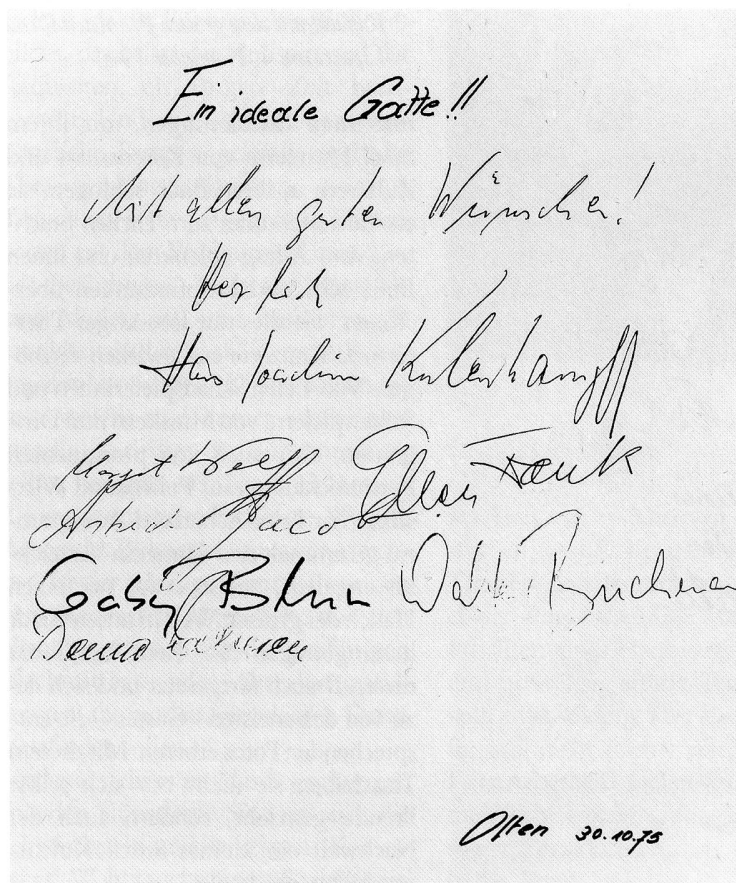 Ein ideale Gatte!!
Mit allen guten Wünschen!
Herzlich
Hans Joachim Kulenkampff
Margit Ellen Frank
Astrid Jacob
Gaby Blum Walter
Benno
Olten 30.10.75